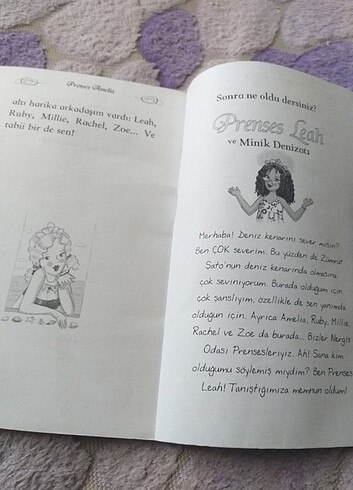 Prenses Amelia
altı harika arkadaşım vardı: Leah,
Ruby, Millie, Rachel, Zoe... Ve
tabii bir de sen!
Sonra ne oldu dersiniz?
Prenses Leah
ve Minik Denizatı
Merhaba! Deniz kenarını sever misin?
Ben ÇOK severim. Bu yüzden de Zümrüt
Şato'nun deniz kenarında olmasına
çok seviniyorum. Burada olduğum için
çok şanslıyım, özellikle de sen yanımda
olduğun için. Ayrıca Amelia, Ruby, Millie,
Rachel ve Zoe da burada... Bizler Nergis
Odası Prensesleriyiz. Ah! Sana kim
olduğumu söylemiş miydim? Ben Prenses
Leah! Tanıştığımıza memnun oldum!